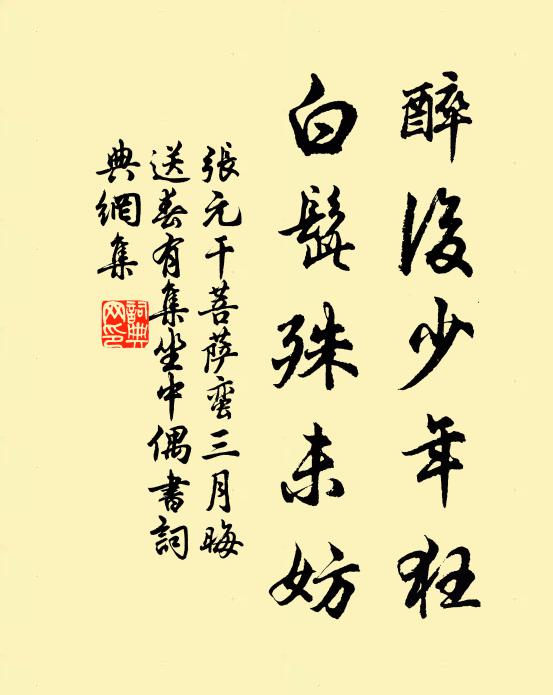 醉後少年狂
白髭殊未妨
張元干菩薩蠻三月晦
送春有集坐中偶書詞
典網集
詞典
网印